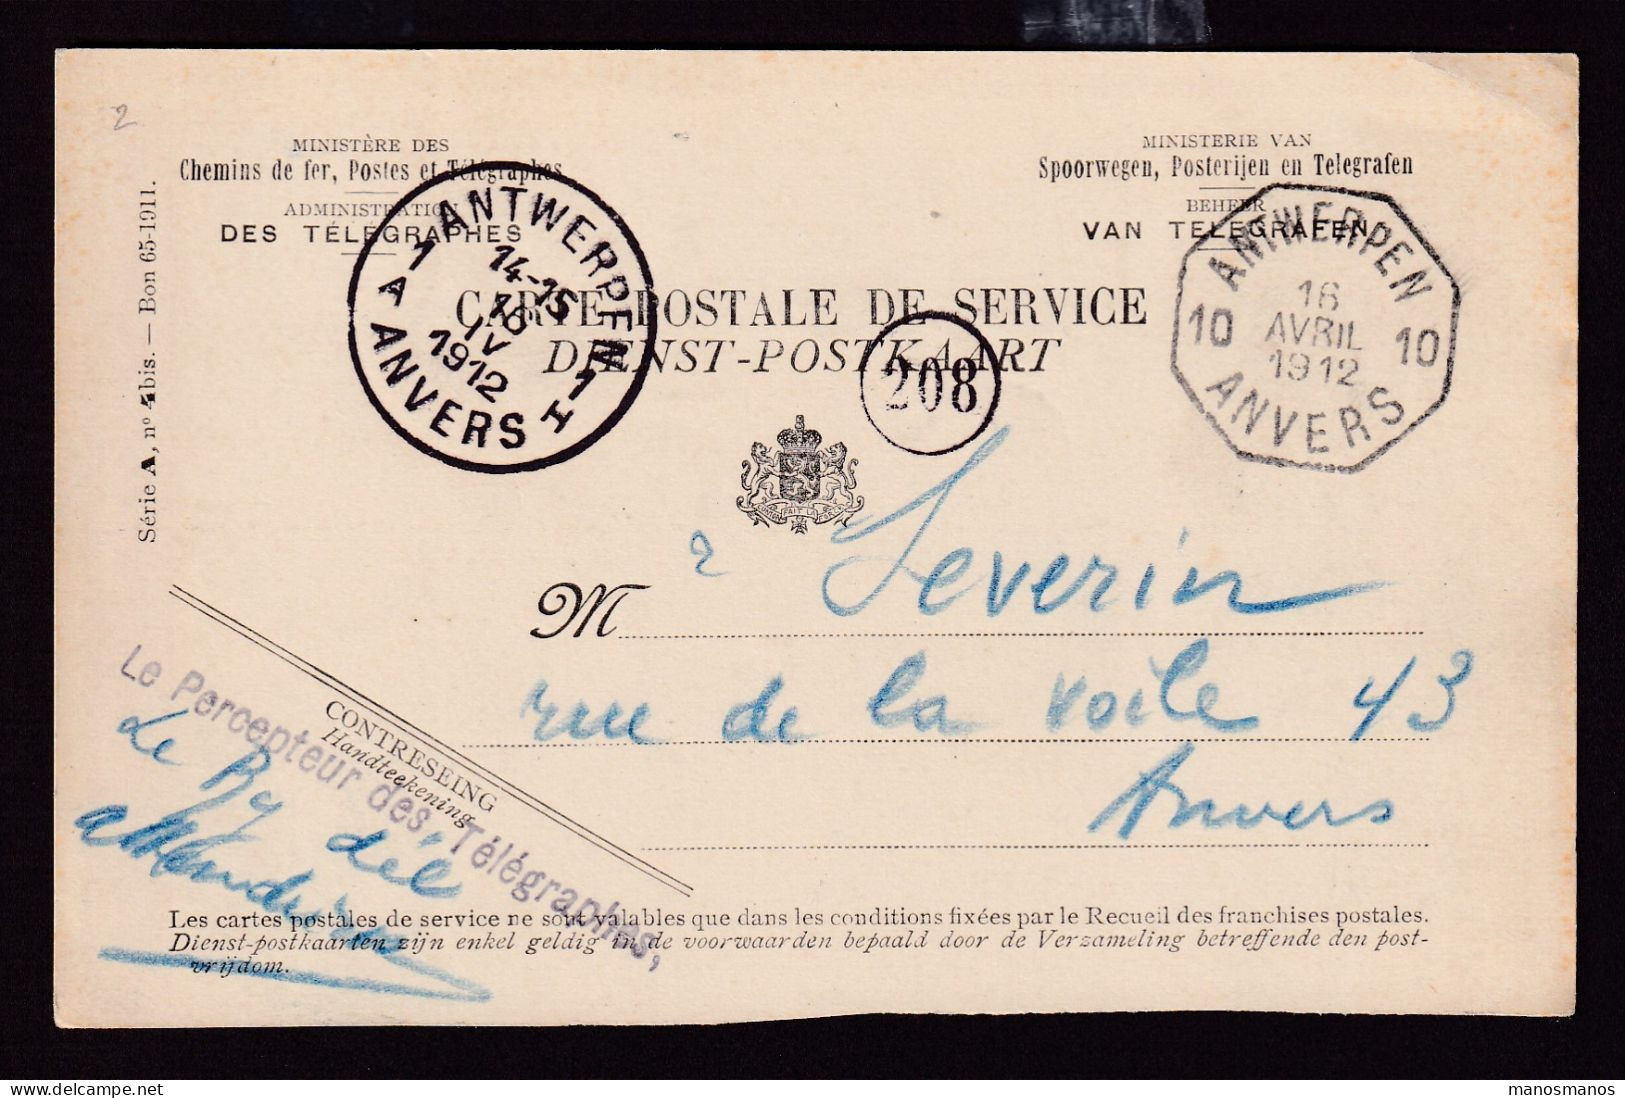 2
MINISTÈRE DES
Chemins de fer, Postes et Télégraphes
ADMINISTRATION
DES TÉLÉGRAPHES
MINISTERIE VAN
Spoorwegen, Posterijen en Telegrafen
BEHEER
VAN TELEGRAFEN
Série A, nº 4bis. — Bon 65-1911.
ANTWERPEN
1 14-15 1
A 16 H
IV
1912
ANVERS
ANTWERPEN
16
10 AVRIL 10
1912
ANVERS
CARTE POSTALE DE SERVICE
DIENST-POSTKAART
208
L'UNION FAIT LA FORCE
M r Severin
rue de la voile 43
Anvers
CONTRESEING
Handteekening
Le Percepteur des Télégraphes,
Le
dél
Les cartes postales de service ne sont valables que dans les conditions fixées par le Recueil des franchises postales.
Dienst-postkaarten zijn enkel geldig in de voorwaarden bepaald door de Verzameling betreffende den post-
vrijdom.
manosmanos